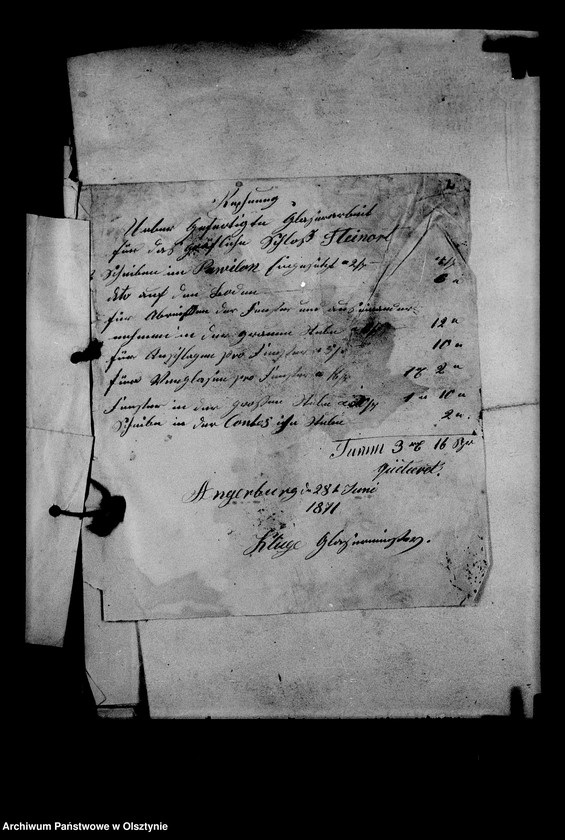 2
Rechnung
Ueber gefertigte Glaserarbeit
für das gräfliche Schloß Steinort
Scheiben im Pawilon Eingesetzt a 2 sg 4 sg
dito auf den Boden 6 "
für Abreißen der Fenster und auseinander
nehmen in der grauen Stube 12 "
für Anschlagen pro Fenster a 5 sg 10 "
für Verglasen pro Fenster a 16 sg 1 rt 2 "
Fenster in der großen Stube 1 " 10 "
Scheiben in der Comtes ihr Stube 2 "
Summ 3 rt 16 Sgr
Quitiret.
Angerburg d 28t Juni
1871
Kluge Glasermeister.
Archiwum Państwowe w Olsztynie